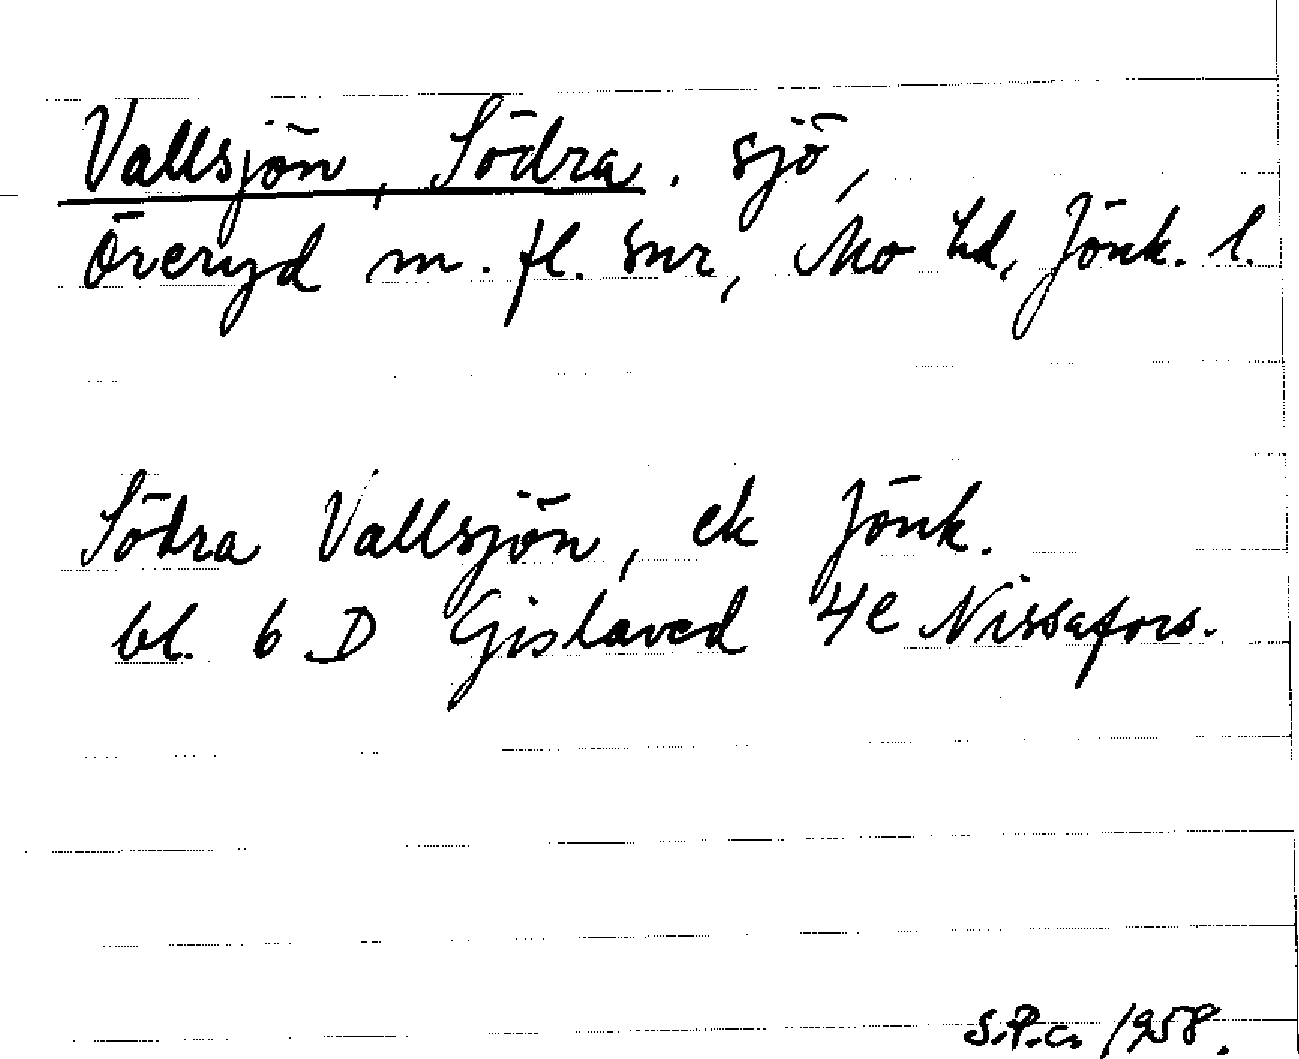 Vallsjön, Södra. sjö,
Öreryd m. fl. snr, Mo hd, Jönk. l.
Södra Vallsjön, ek Jönk.
bl. 6 D Gislaved 4e Nissafors.
S.P.c. 1958.